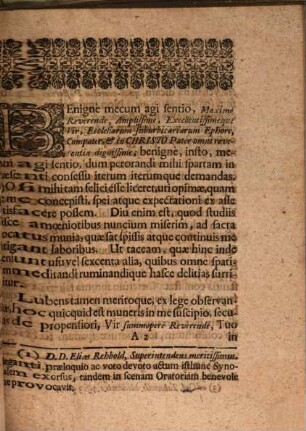 BEnigne mecum agi sentio, Maxime
Reverende, Amplissime, Excellentissimeque
Vir, Ecclesiarum suburbicariarum Ephore,
Compater, & in CHRISTO Pater omni reve-
rentia dignissime, benigne, inquam, me-
cum agi sentio, dum perorandi mihi spartam in
præsenti consessu iterum iterumque demandas.
O si mihi tam felici esse liceret, uti opimæ, quam
de me concepisti, spei atque expectationi ex asse
satisfacere possem. Diu enim est, quod studiis
amœniotibus nuncium miserim, ad sacra
vocatus munia, quæ sat spissis atque continuis me
fatigant laboribus. Ut taceam, quæ hinc inde
sexcenta alia, quibus omne spati-
um meditandi ruminandique hasce delitias surri-
Lubens tamen meritoque, ex lege observan-
hoc quicquid est muneris in me suscipio, secu-
de propensiori, Vir summopere Reverende, Tuo
A 2 in
(1) D. D. Elias Rehbold, Superintendens meritissimus.
præloquio ac voto devoto actum istiusne Syno-
exorsus, tandem in scenam Oratoriam benevole
provocavit.